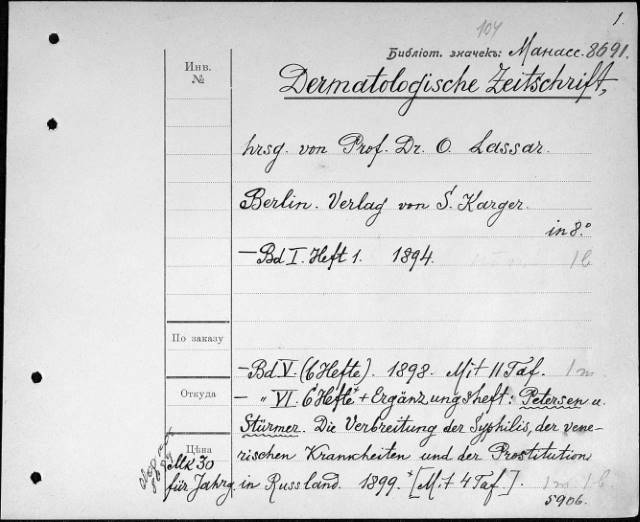 1.
104
Библіот. значекъ: Манасс. 8691.
Инв.
№
Dermatologische Zeitschrift,
hrsg. von Prof. Dr. O. Lassar.
Berlin. Verlag von S. Karger.
in 8.°
— Bd I. Heft 1. 1894.
1 b
По заказу
— Bd V. (6 Hefte). 1898. Mit 11 Taf. 1 m.
Откуда
— " VI. 6 Hefte* + Ergänzungsheft: Petersen u.
Stürmer. Die Verbreitung der Syphilis, der vene-
Цѣна
rischen Krankheiten und der Prostitution
Mk 30
für Jahrg.
in Russland. 1899. * [Mit 4 Taf.]. 1 m. 1 b.
5906.